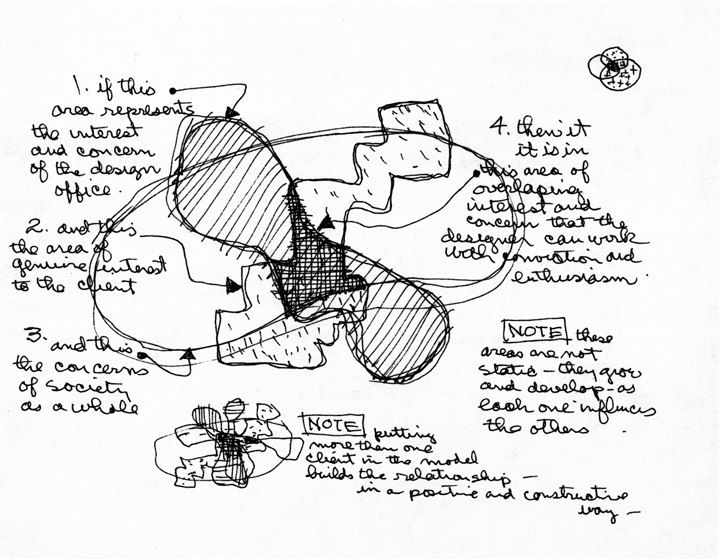 1. if this
area represents
the interest
and concern
of the design
office.
2. and this
the area of
genuine interest
to the client
3. and this
the concerns
of society
as a whole
4. then it
it is in
this area of
overlaping
interest and
concern that the
designer can work
with conviction and
enthusiasm.
NOTE these
areas are not
static — they grow
and develop - as
each one influences
the others.
NOTE putting
more than one
client in the model
builds the relationship —
in a positive and constructive
way —